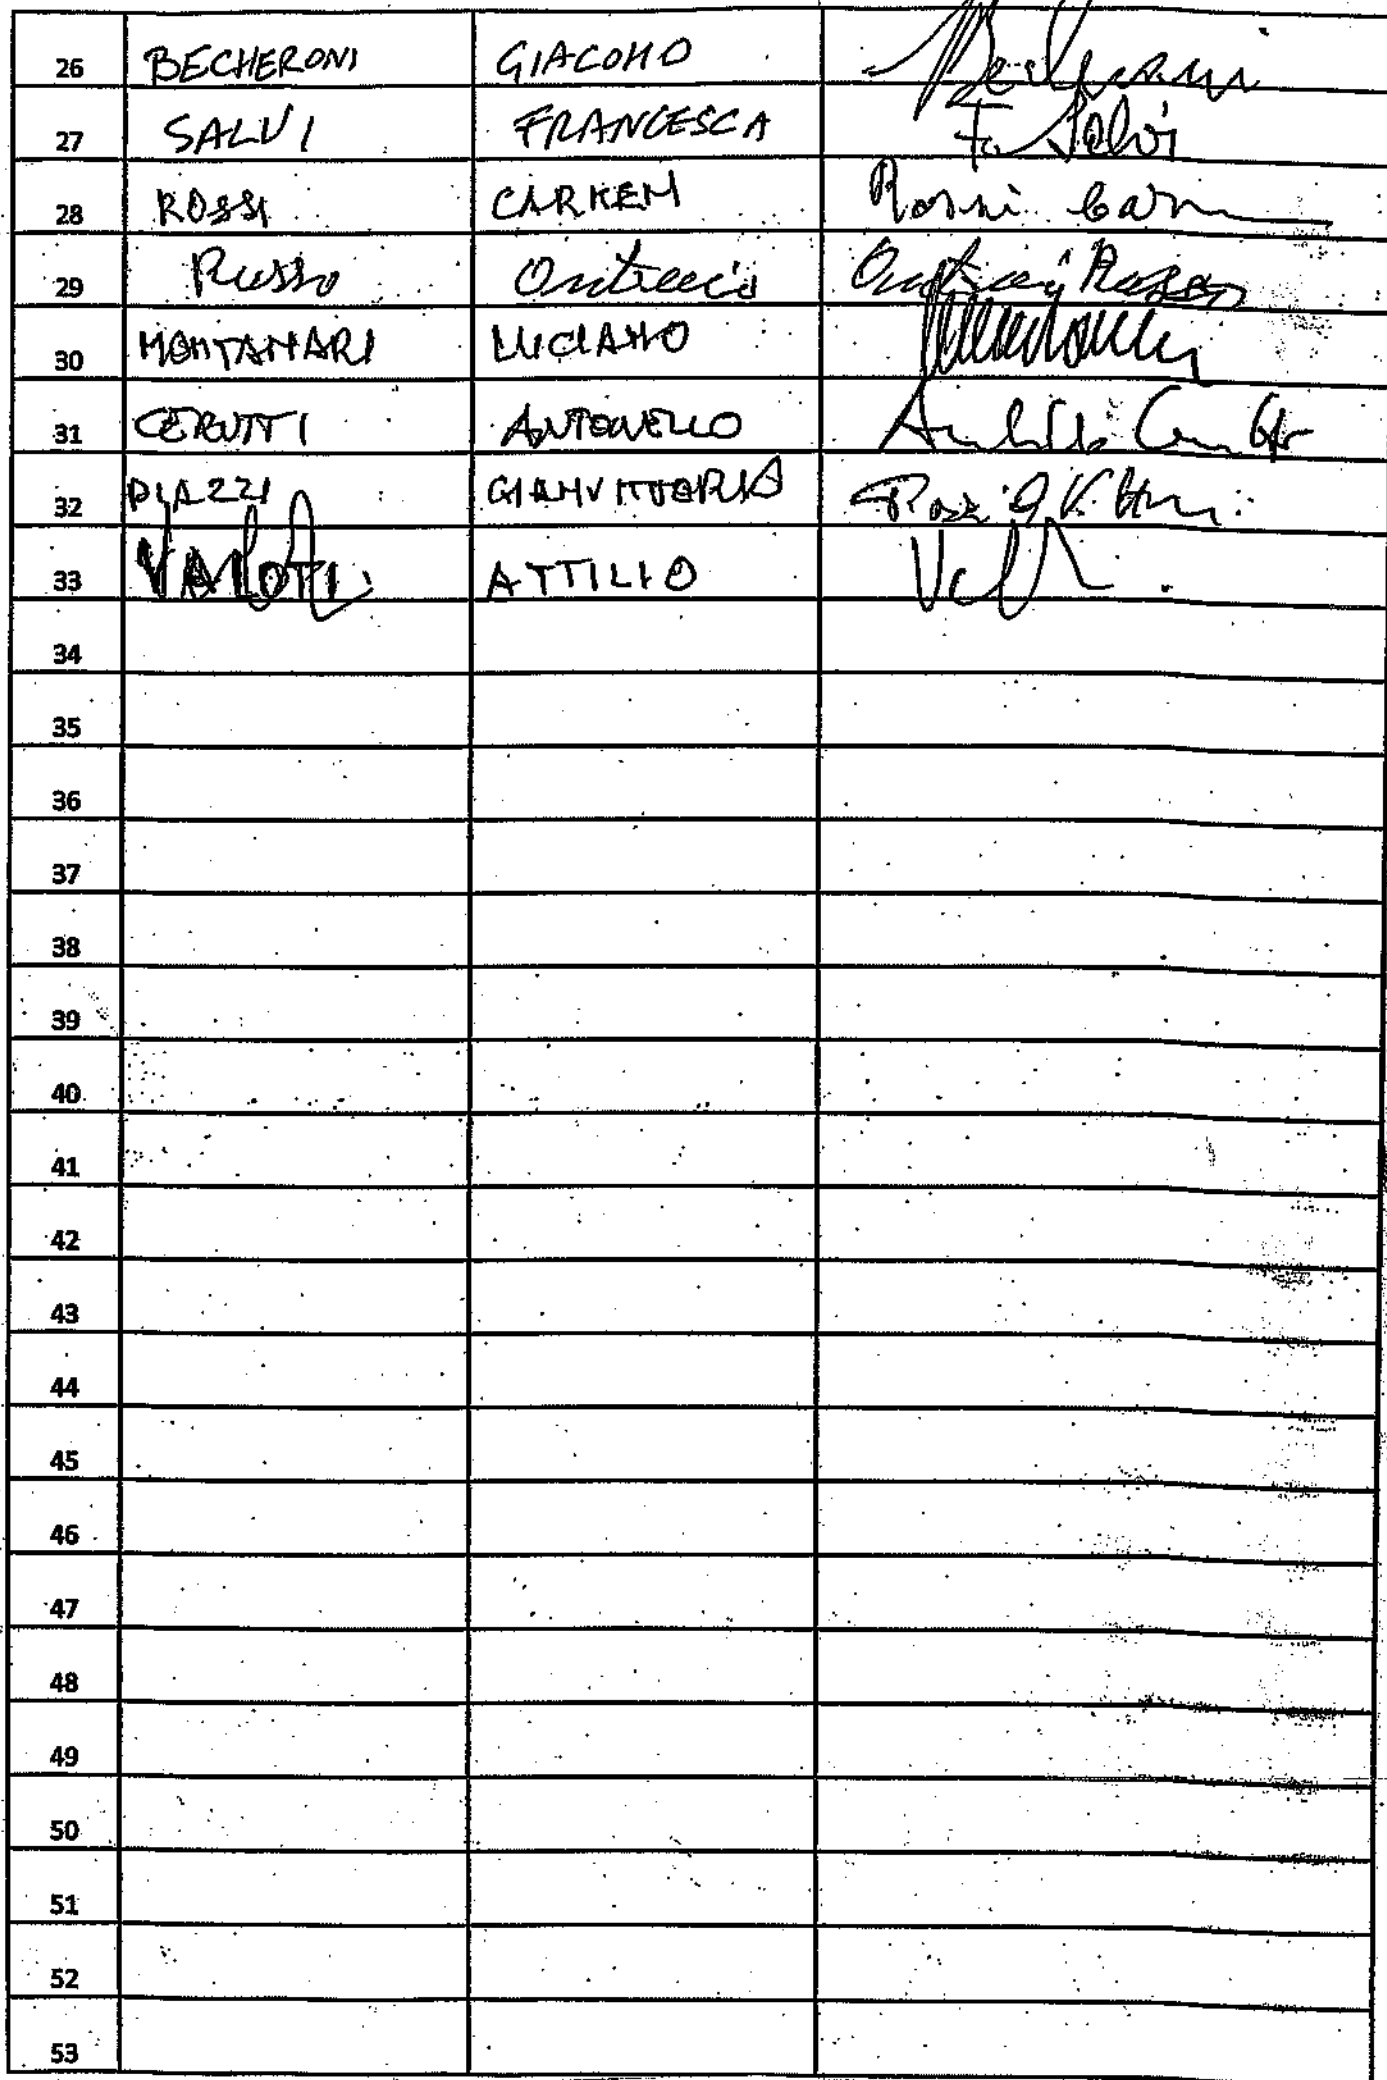 26 BECHERONI GIACOMO
27 SALVI FRANCESCA F. Salvi
28 ROSSI CARMEN Rossi Carm
29 Russo Russo
30 MONTANARI LUCIANO
31 CERUTTI ANTONELLO
32 PIAZZI GIANVITTORIO
33 ATTILIO
34
35
36
37
38
39
40
41
42
43
44
45
46
47
48
49
50
51
52
53